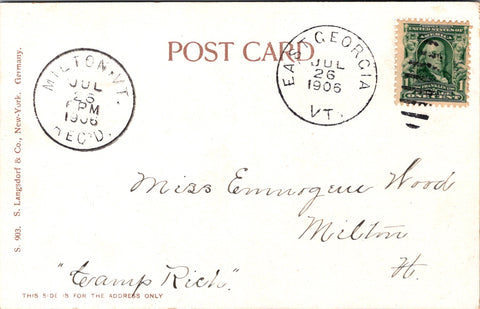 POST CARD
MILTON, VT.
JUL
26
6 PM
1906
REC'D.
EAST GEORGIA
JUL
26
1906
VT.
UNITED STATES OF AMERICA
FRANKLIN
ONE CENT
S. 903. S. Langsdorf & Co., New-York. Germany.
Miss Emmogene Wood
Milton
Vt.
"Camp Rich".
THIS SIDE IS FOR THE ADDRESS ONLY